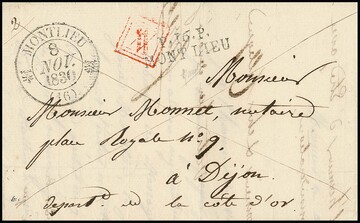 2
MONTLIEU
8
NOV.
1830
(16)
P. 16. P.
MONTLIEU
Monsieur
Monsieur Monnet, notaire
place Royale nº 9.
à Dijon
depart.t de la côte d'or.